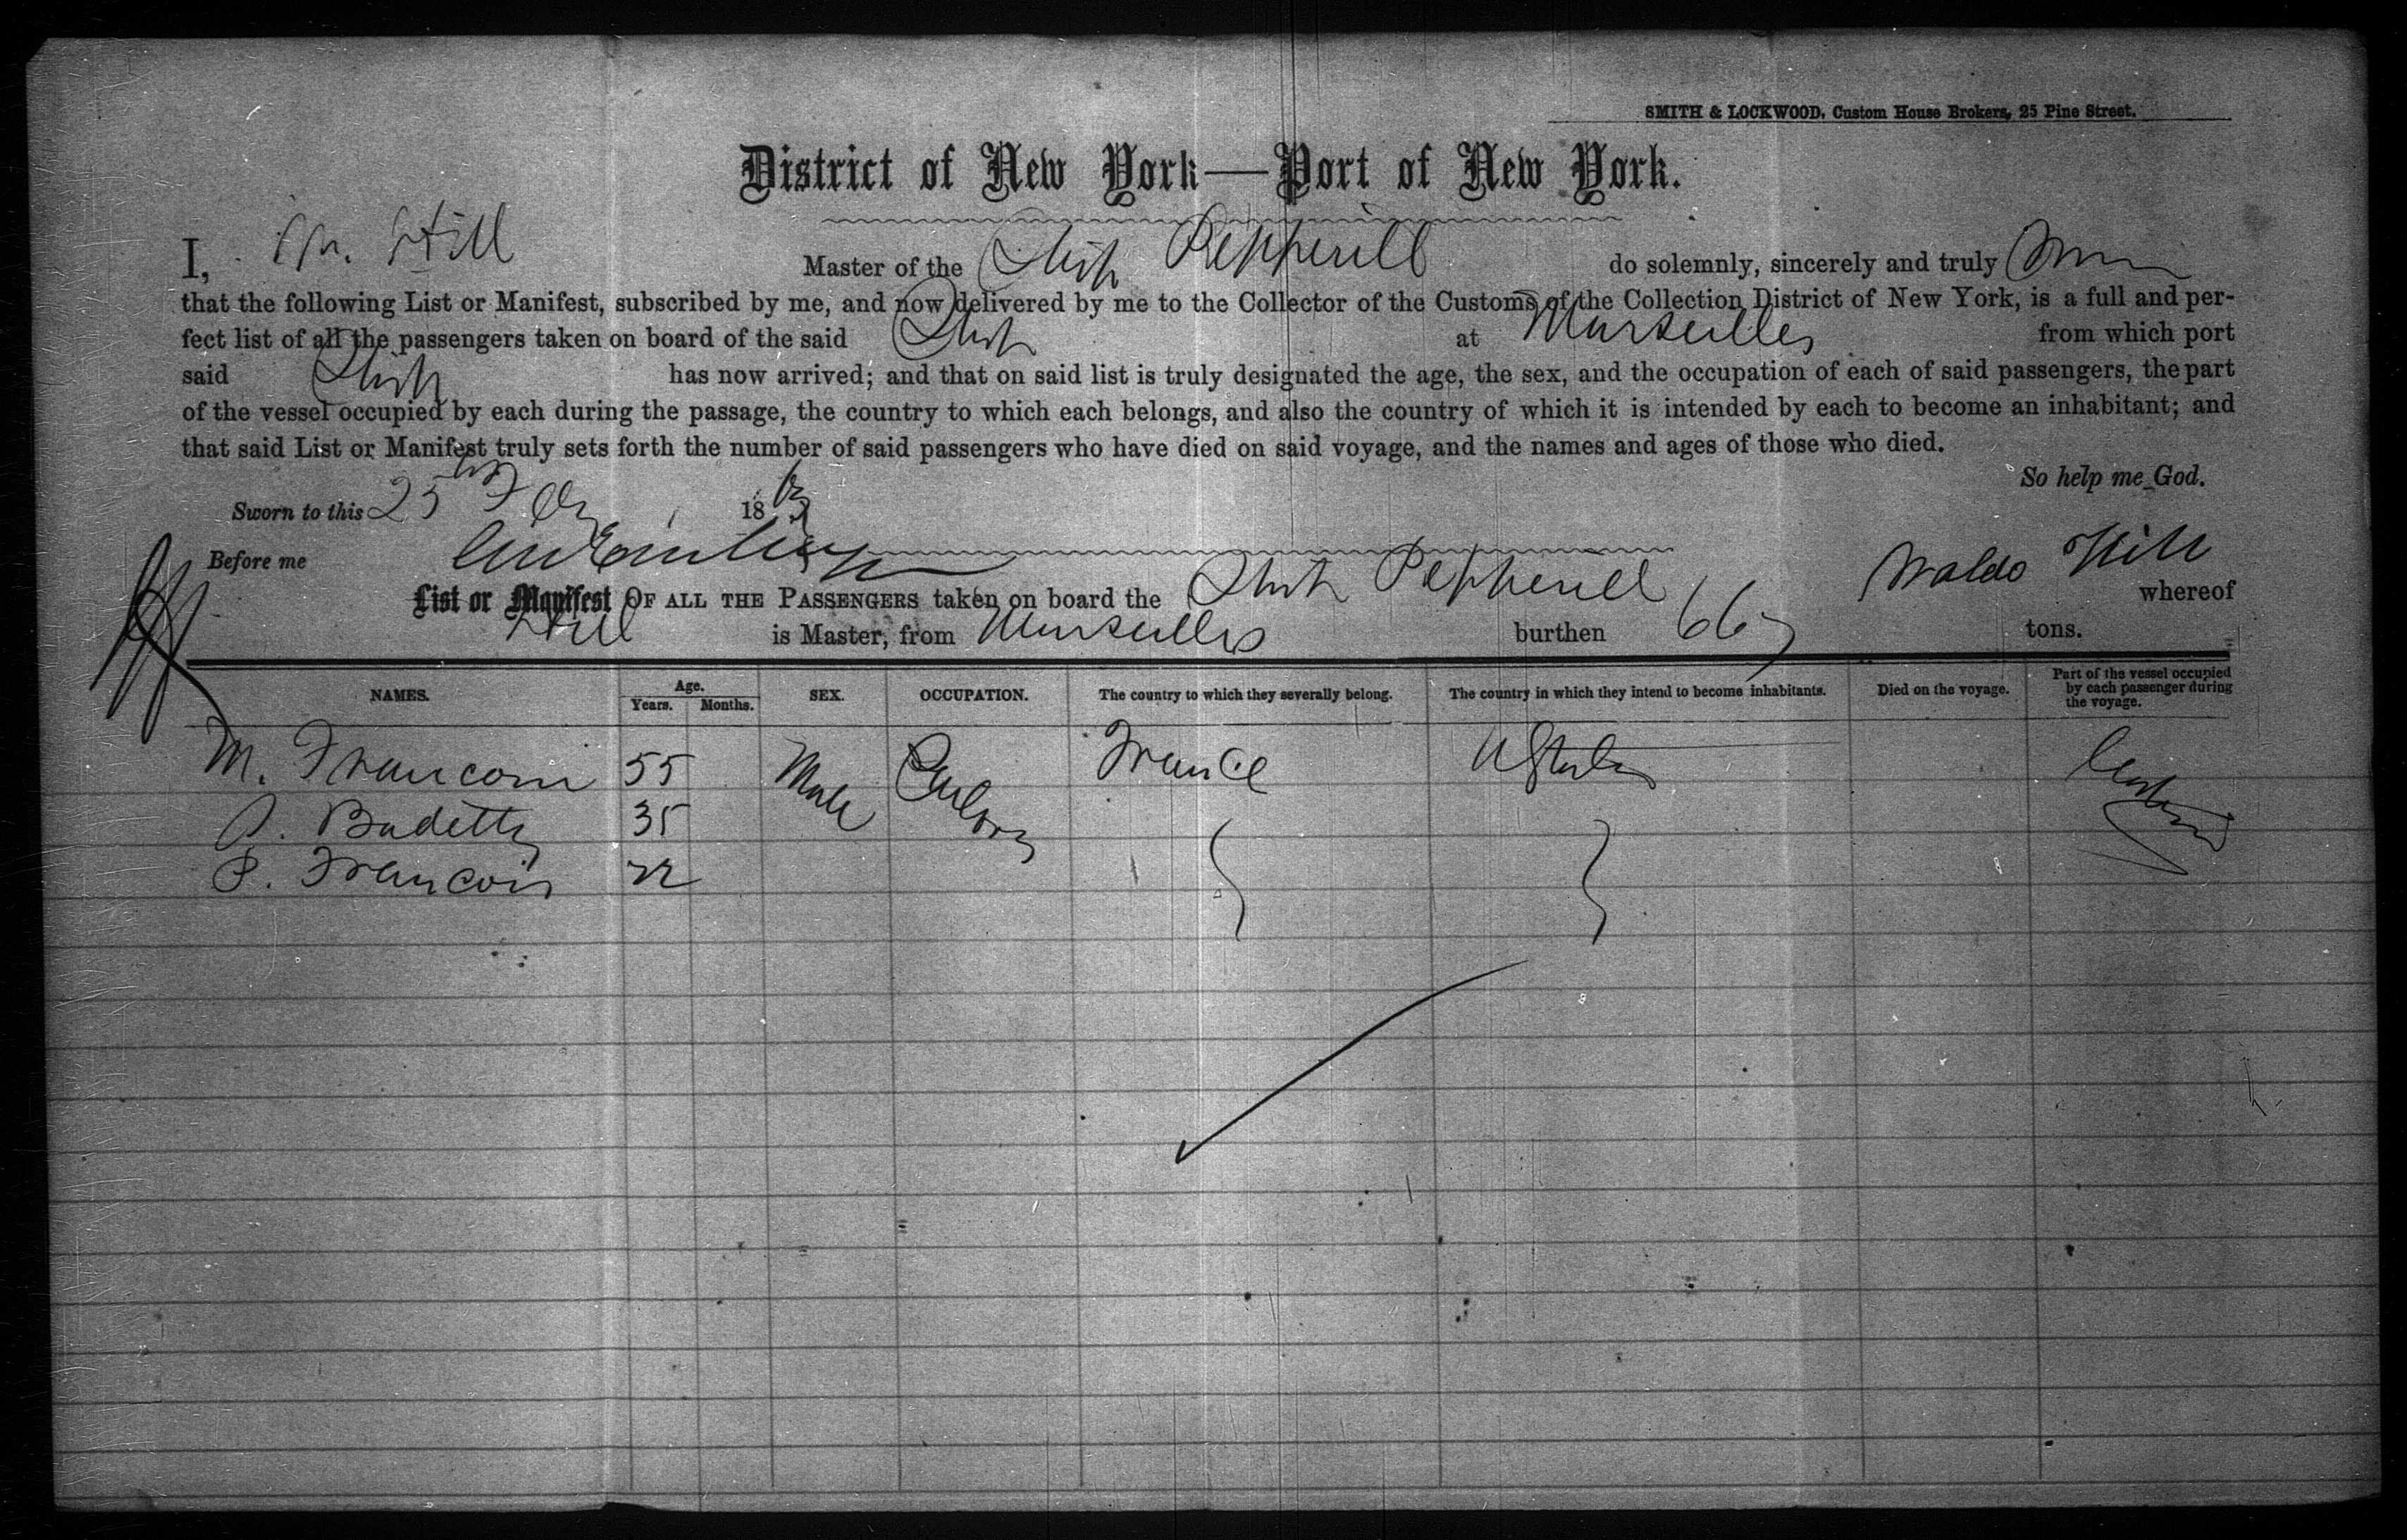 SMITH & LOCKWOOD, Custom House Brokers, 25 Pine Street.
District of New York—Port of New York.
I, Hill Master of the Ship Pepperill do solemnly, sincerely and truly
that the following List or Manifest, subscribed by me, and now delivered by me to the Collector of the Customs of the Collection District of New York, is a full and per-
fect list of all the passengers taken on board of the said Ship at Marseilles from which port
said Ship has now arrived; and that on said list is truly designated the age, the sex, and the occupation of each of said passengers, the part
of the vessel occupied by each during the passage, the country to which each belongs, and also the country of which it is intended by each to become an inhabitant; and
that said List or Manifest truly sets forth the number of said passengers who have died on said voyage, and the names and ages of those who died.
So help me God.
Sworn to this 25 18
Before me Waldo Hill
List or Manifest OF ALL THE PASSENGERS taken on board the Ship Pepperill whereof
Hill is Master, from Marseilles burthen 667 tons.
NAMES. Age. Years. Months. SEX. OCCUPATION. The country to which they severally belong. The country in which they intend to become inhabitants. Died on the voyage. Part of the vessel occupied by each passenger during the voyage.
M. Francois 55 Male France U States
Badetty 35
P. Francois 22